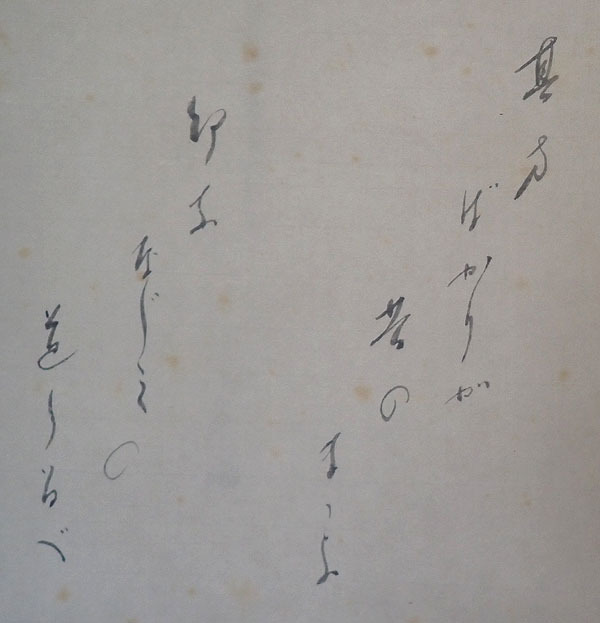 其方
ばかりが
昔の
まゝよ
幼な
なじみの
道しるべ